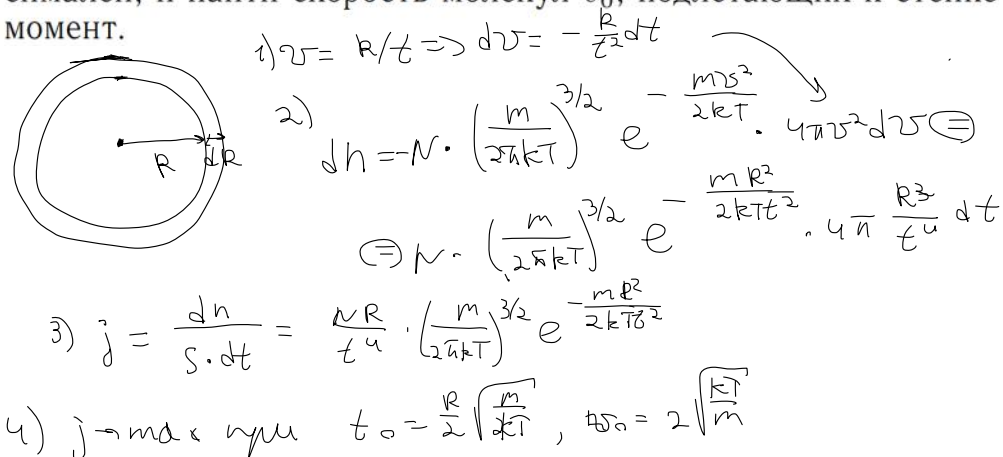 момент.
1) v = R/t => dv = - R/t² dt
R dR
2) dn = -N · (m/2πkT)^3/2 e^(- mv²/2kT) · 4πv² dv =
= N · (m/2πkT)^3/2 e^(- mR²/2kTt²) · 4π R³/t⁴ dt
3) j = dn/S·dt = NR/t⁴ · (m/2πkT)^3/2 e^(- mR²/2kTt²)
4) j → max при t₀ = R/2 √(m/kT) , v₀ = 2 √(kT/m)